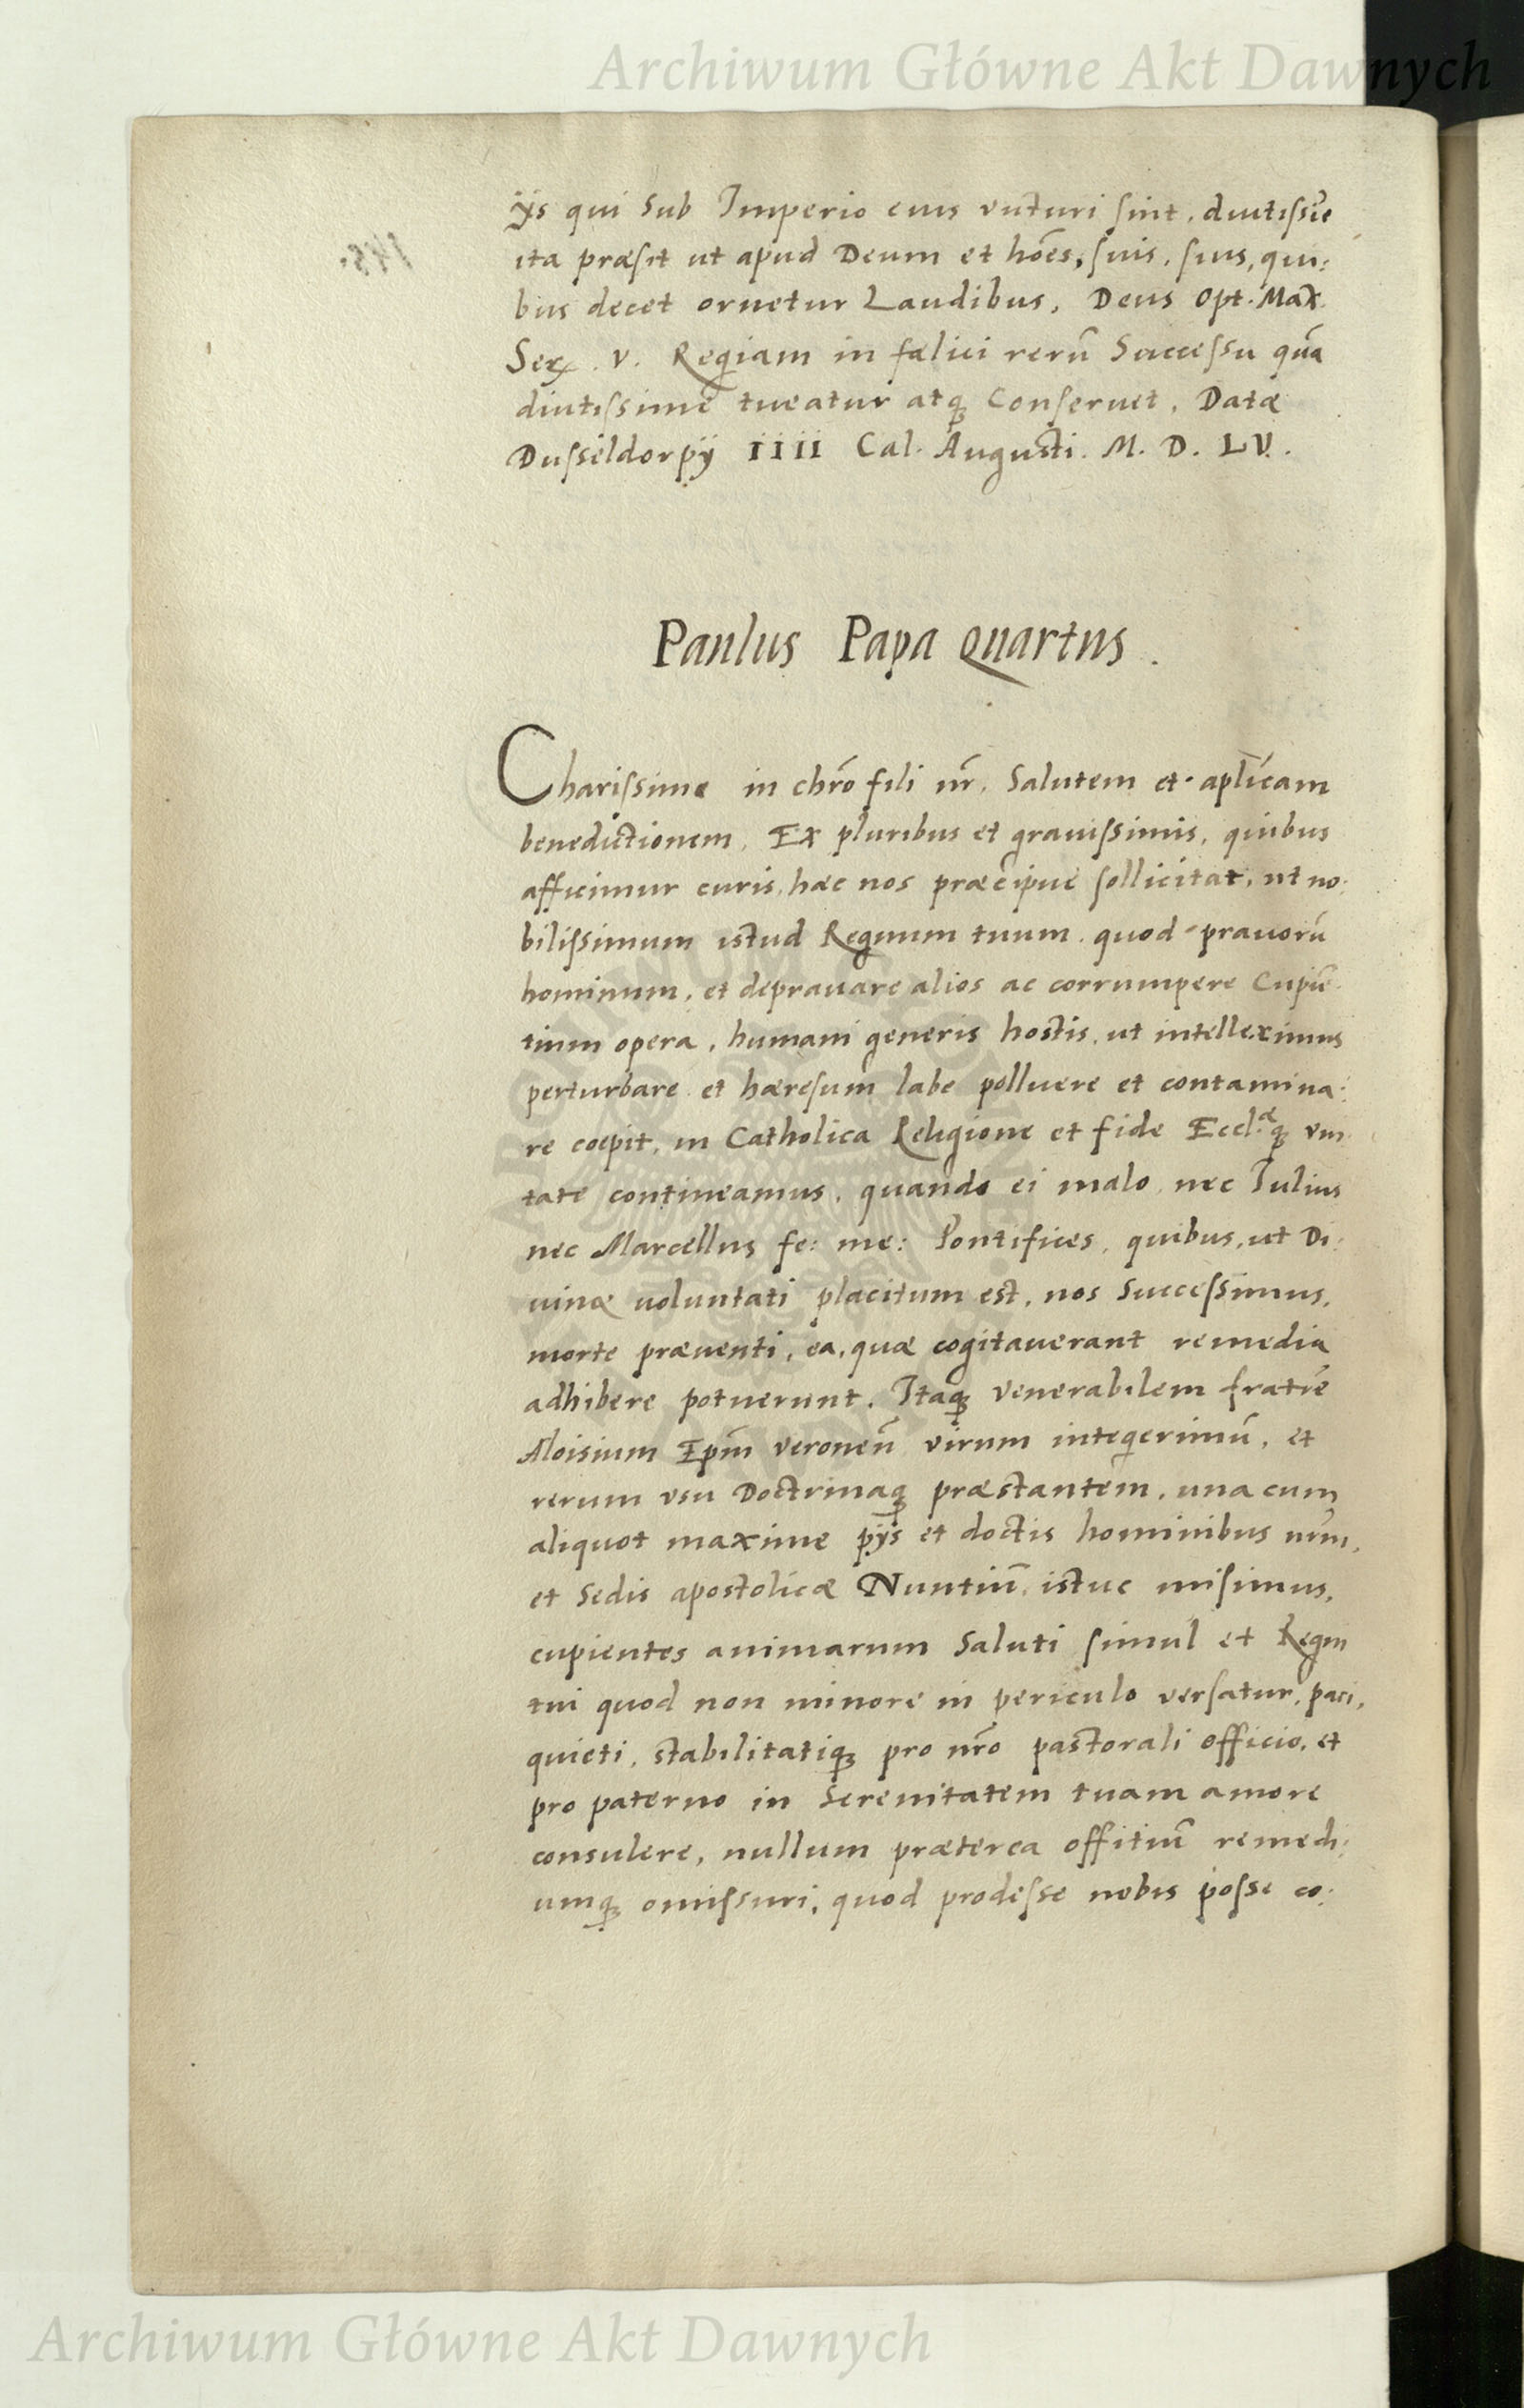 Archiwum Główne Akt Dawnych
ijs qui sub Imperio eius victuri sint, diutissīe
ita præsit ut apud Deum et hoēs, suis, suis, qui:
bus decet ornetur Laudibus, Deus Opt. Max.
Ser. V. Regiam in fælici rerū Successu quā
diutissime tueatur atq₃ Conseruet, Datæ
Dusseldorpij IIII Cal. Augusti. M. D. LV.
Paulus Papa Quartus.
Charissime in chrō fili nr̄, Salutem et aplīcam
benedictionem, Ex pluribus et grauissimis, quibus
afficimur curis, hæc nos præcipue sollicitat, ut no:
bilissimum istud Regnum tuum, quod prauorū
hominum, et deprauare alios ac corrumpere Cupiē
tium opera, humani generis hostis, ut intelleximus
perturbare et hæresum labe polluere et contamina:
re coepit, in Catholica Religione et fide Eccl.æq₃ vni
tate contineamus, quando ei malo, nec Iulius
nec Marcellus fe: me: Pontifices, quibus, ut Di:
uinæ uoluntati placitum est, nos Successimus,
morte præuenti, ea, quæ cogitauerant remedia
adhibere potuerunt. Itaq₃ Venerabilem fratrē
Aloisium Epm̄ Veroneñ virum integerimū, et
rerum vsu Doctrinaq₃ præstantem, una cum
aliquot maxime pijs et doctis hominibus nr̄m,
et Sedis apostolicæ Nuntiū istuc misimus,
cupientes animarum Saluti simul et Regni
tui quod non minore in periculo versatur, paci,
quieti, stabilitatiq₃ pro nr̄o pastorali officio, et
pro paterno in Serenitatem tuam amore
consulere, nullum præterea offitiū remedi:
umq₃ omissuri, quod prodesse nobis posse co:
Archiwum Główne Akt Dawnych